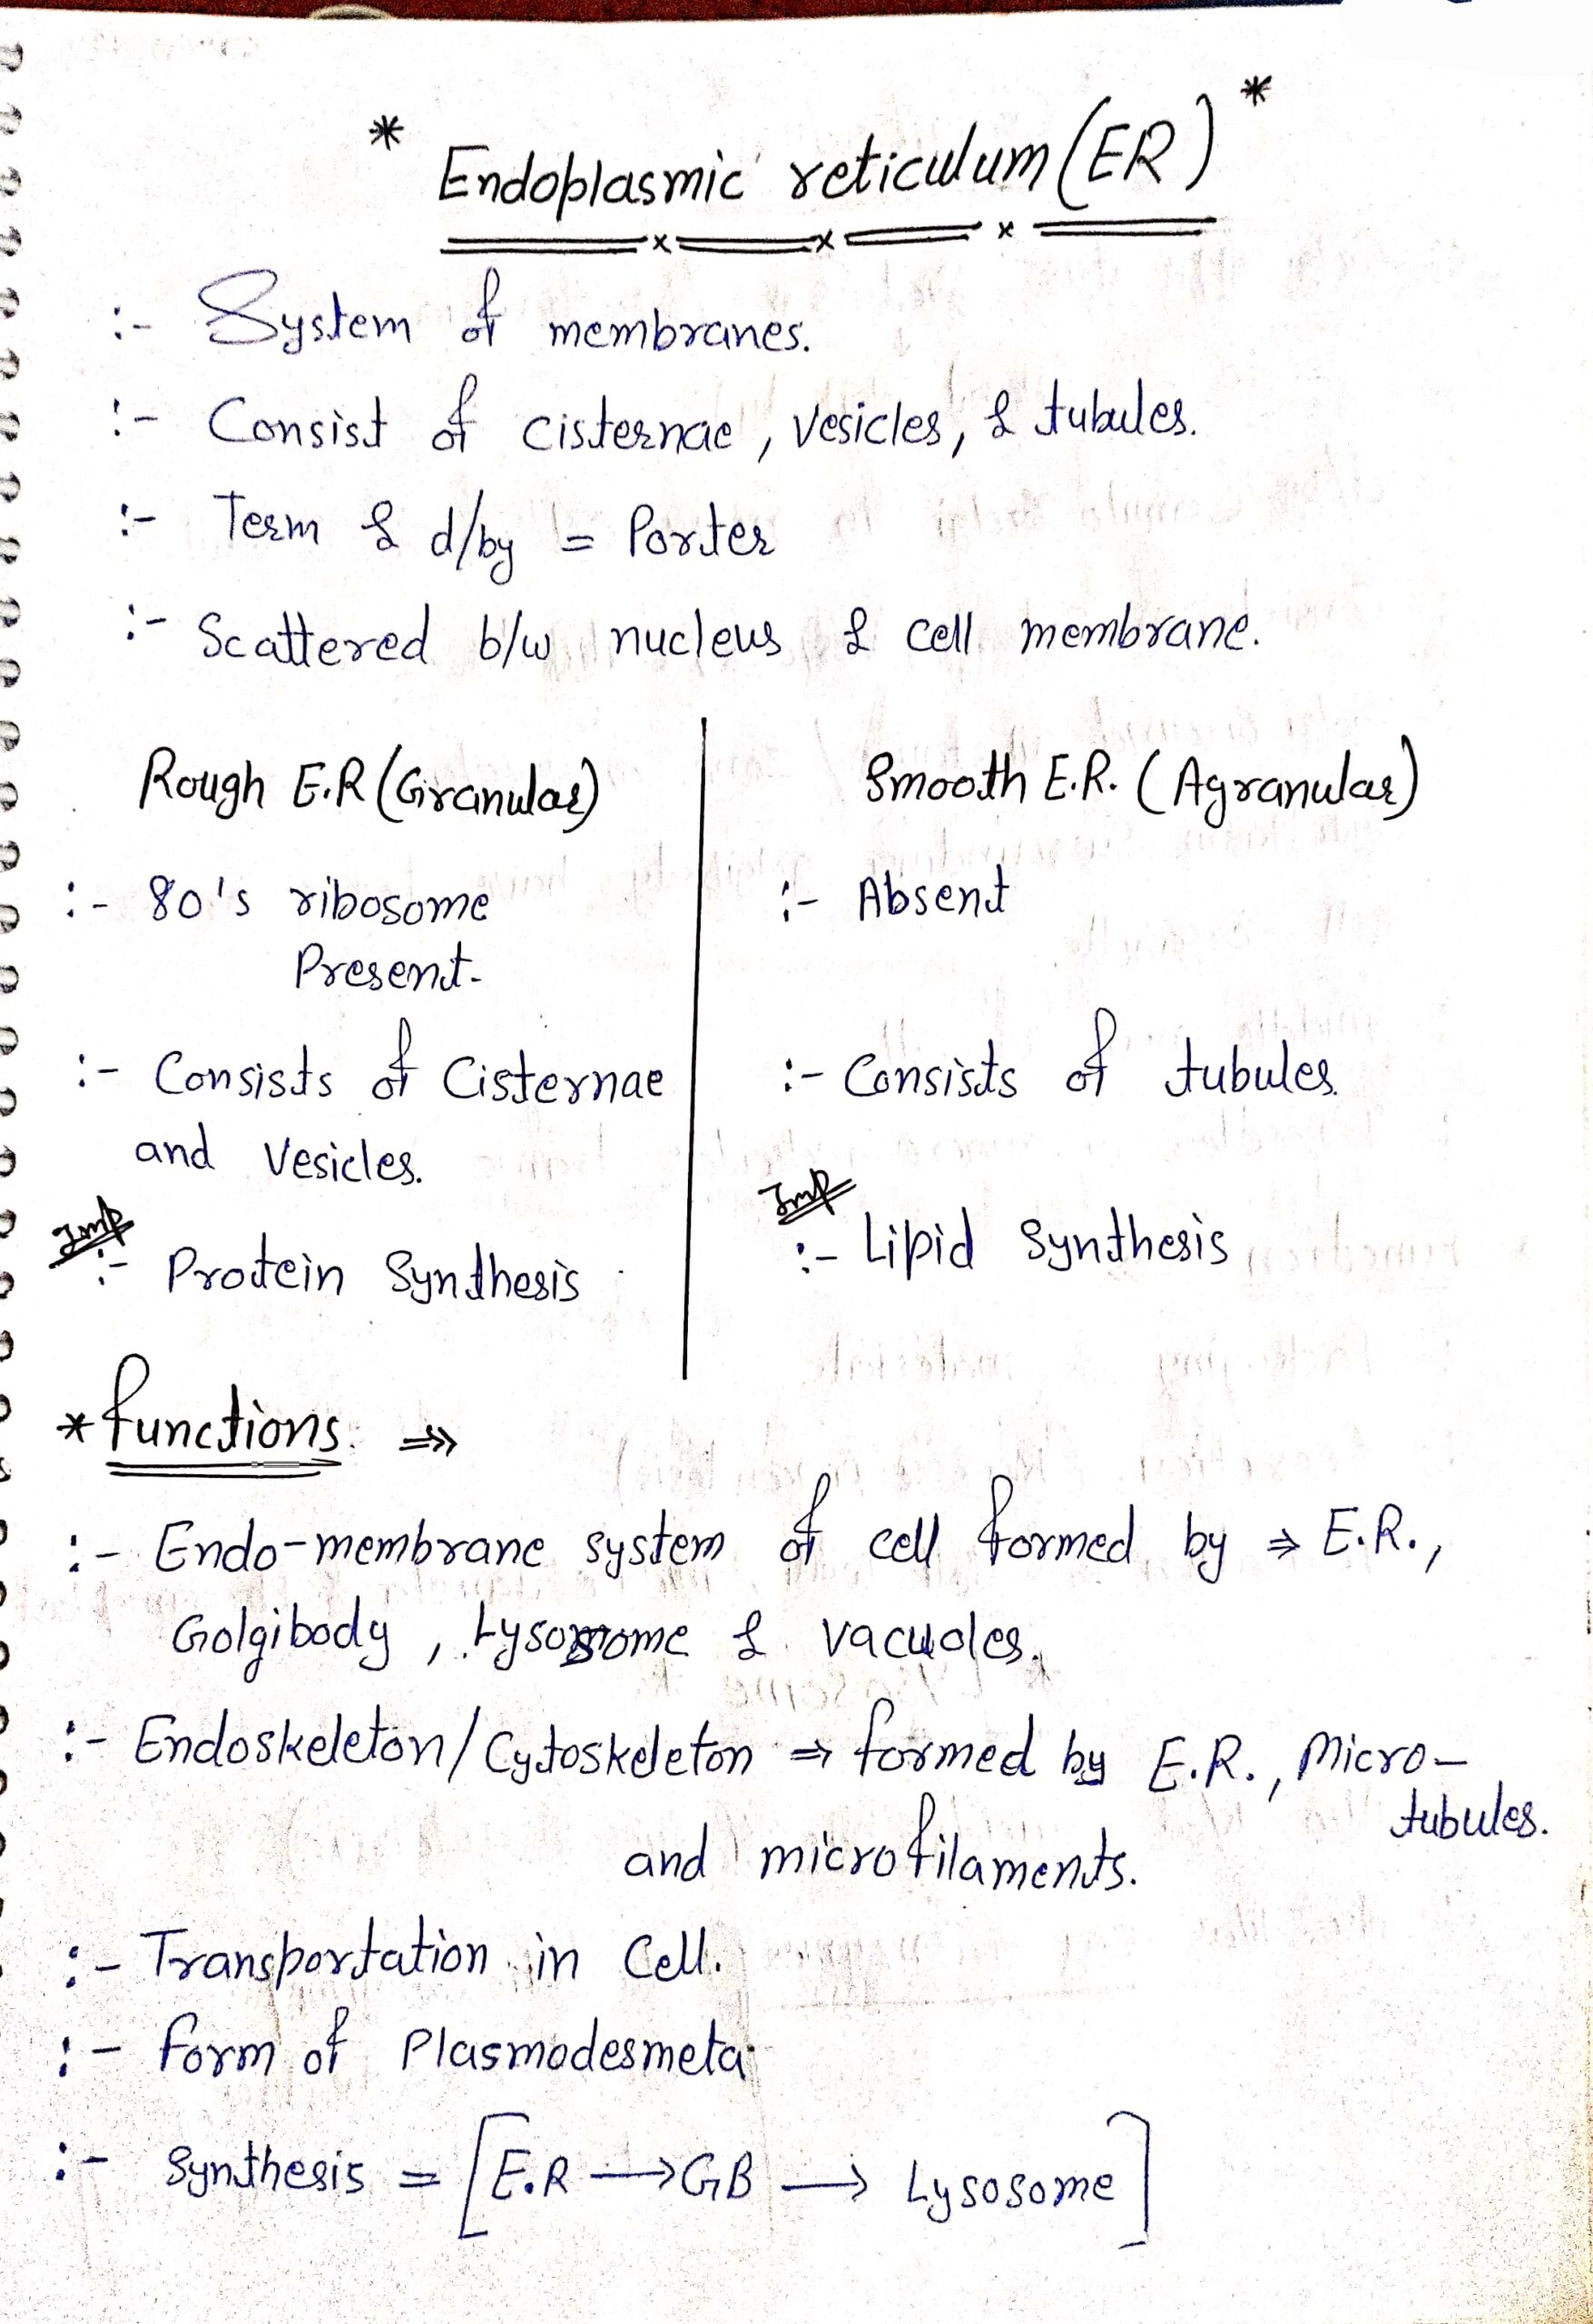 * Endoplasmic reticulum (ER) *
:- System of membranes.
:- Consist of cisternae, vesicles, & tubules.
:- Term & d/by = Porter
:- Scattered b/w nucleus & cell membrane.
Rough E.R (Granular)
:- 80's ribosome
Present.
:- Consists of Cisternae
and Vesicles.
Imp
:- Protein Synthesis
Smooth E.R. (Agranular)
:- Absent
:- Consists of tubules.
Imp
:- Lipid Synthesis
* functions. ⇒>
:- Endo-membrane system of cell formed by ⇒ E.R.,
Golgibody, Lysosome & vacuoles.
:- Endoskeleton/Cytoskeleton ⇒ formed by E.R., Micro-
tubules.
and microfilaments.
:- Transportation in Cell.
:- form of Plasmodesmeta
:- Synthesis = [E.R → GB → Lysosome]